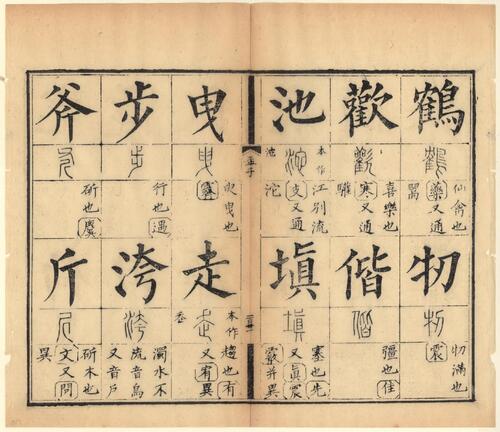 鶴
仙禽也
藥又通
翯
牣
牣滿也
震
歡
喜樂也
寒又通
偕
彊也佳
池
本作
江別流
支又通
沱
池
填
塞也先
又眞震
霰并異
曳
臾曳也
霽
走
本作
趨也有
又宥異
步
行也遇
洿
濁水不
流音烏
又音戶
斧
斫也麌
斤
斫木也
文又問
異